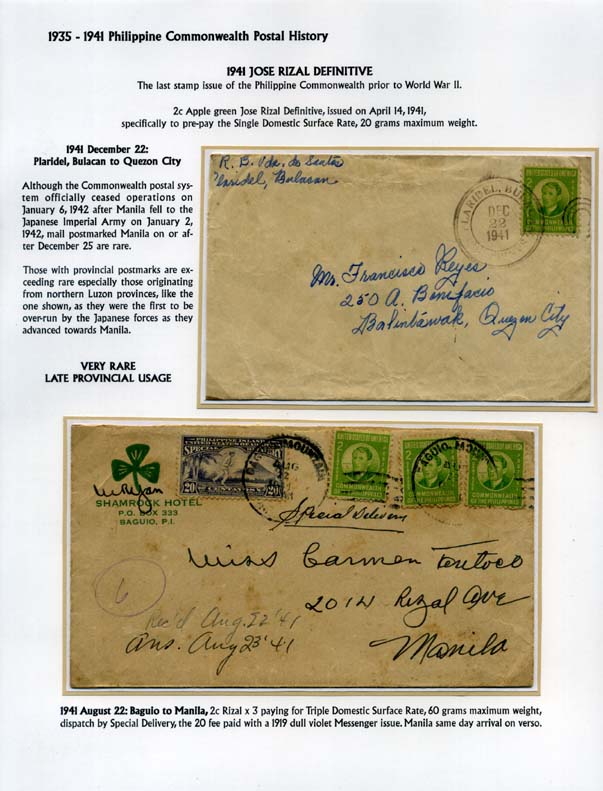 1935 - 1941 Philippine Commonwealth Postal History
1941 JOSE RIZAL DEFINITIVE
The last stamp issue of the Philippine Commonwealth prior to World War II.
2c Apple green Jose Rizal Definitive, issued on April 14, 1941,
specifically to pre-pay the Single Domestic Surface Rate, 20 grams maximum weight.
1941 December 22:
Plaridel, Bulacan to Quezon City
Although the Commonwealth postal sys-
tem officially ceased operations on
January 6, 1942 after Manila fell to the
Japanese Imperial Army on January 2,
1942, mail postmarked Manila on or af-
ter December 25 are rare.
Those with provincial postmarks are ex-
ceeding rare especially those originating
from northern Luzon provinces, like the
one shown, as they were the first to be
over-run by the Japanese forces as they
advanced towards Manila.
VERY RARE
LATE PROVINCIAL USAGE
R. B. Vda. de Santos
Plaridel, Bulacan
DEC
22
1941
UNITED STATES OF AMERICA
2
COMMONWEALTH
OF THE PHILIPPINES
Mr. Francisco Reyes
250 A. Bonifacio
Balintáwak, Quezon City
SHAMROCK HOTEL
P.O. BOX 333
BAGUIO, P.I.
PHILIPPINE ISLANDS
UNITED STATES OF AMERICA
SPECIAL
20 CENTAVOS 20
AUG
22
UNITED STATES OF AMERICA
2
COMMONWEALTH
OF THE PHILIPPINES
UNITED STATES OF AMERICA
2
COMMONWEALTH
OF THE PHILIPPINES
BAGUIO, MOUNTAIN
AUG
COMMONWEALTH
OF THE PHILIPPINES
Special Delivery
Miss Carmen
2014 Rizal Ave
Manila
6
Rec'd Aug. 22 '41
Ans. Aug 23 '41
1941 August 22: Baguio to Manila, 2c Rizal x 3 paying for Triple Domestic Surface Rate, 60 grams maximum weight,
dispatch by Special Delivery, the 20 fee paid with a 1919 dull violet Messenger issue. Manila same day arrival on verso.